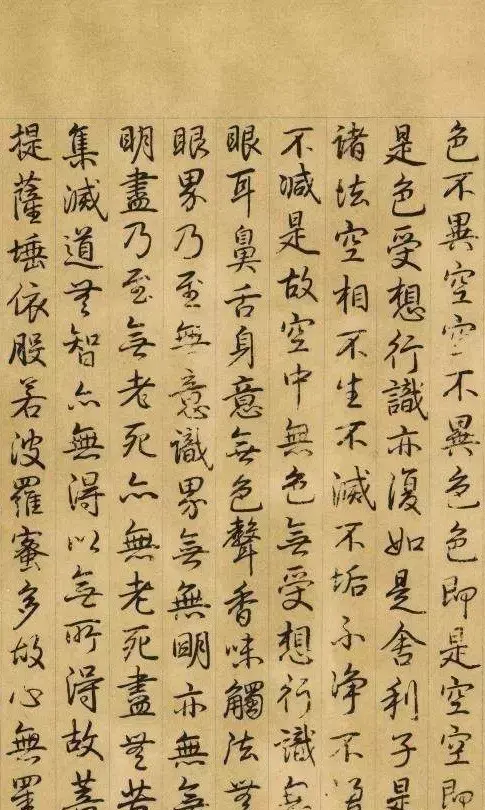 色不異空空不異色色即是空空即
是色受想行識亦復如是舍利子是
諸法空相不生不滅不垢不淨不增
不減是故空中無色無受想行識無
眼耳鼻舌身意無色聲香味觸法無
眼界乃至無意識界無無明亦無無
明盡乃至無老死亦無老死盡無苦
集滅道無智亦無得以無所得故菩
提薩埵依般若波羅蜜多故心無罣